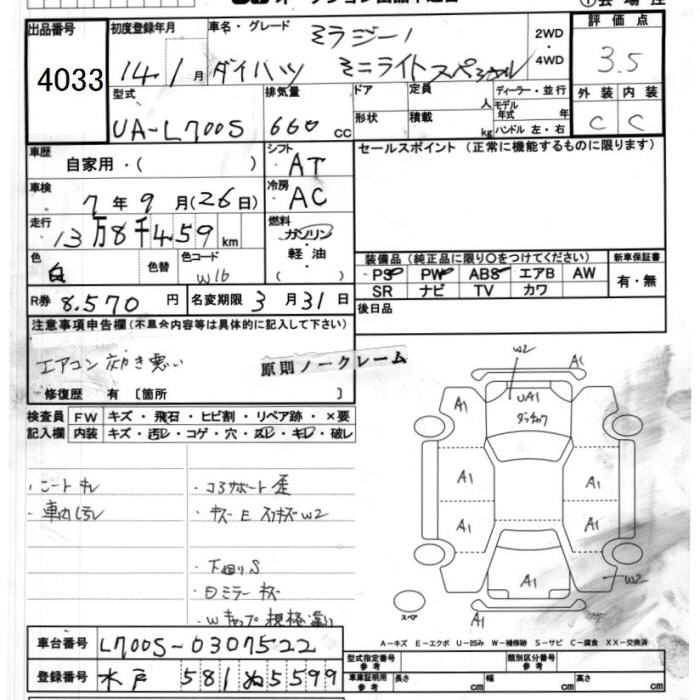 出品番号
4033
初度登録年月
14.1月
車名・グレード
ミラジーノ
ダイハツ ミニライトスペシャル
2WD
・
4WD
評価点
3.5
外装 内装
C C
型式
UA-L700S
排気量
660 cc
ドア
形状
定員
人
積載
kg
ディーラー・並行
モデル年式 年
ハンドル 左・右
車歴
自家用・( )
シフト
AT
セールスポイント(正常に機能するものに限ります)
車検
7年9月(26日)
冷房
AC
走行
13万8千459km
燃料
ガソリン
軽油
( )
色
白
色替
色コード
W16
装備品(純正品に限り〇をつけてください)
新車保証書
PS PW ABS エアB AW
有・無
SR ナビ TV カワ
R券 8.570円
名変期限 3月31日
後日品
注意事項申告欄(不具合内容等は具体的に記入して下さい)
エアコン効き悪い
原則ノークレーム
修復歴 有〔箇所 〕
検査員
記入欄
FW キズ・飛石・ヒビ割・リペア跡・×要
内装 キズ・汚レ・コゲ・穴・スレ・キレ・破レ
・シートキレ
・車内汚レ
・コアサポート歪
・キズ E スリキズ W2
・下廻りS
・Dミラーキズ
・Wキャップ規格違い
W2
A1
A1
UA1
A1
A1
A1
A1
A1
A1
W2
A1
スペア
A-キズ E-エクボ U-凹み W-補修跡 S-サビ C-腐食 XX-交換済
車台番号
L700S-0307522
登録番号
水戸 581 ぬ 5599
型式指定番号
参考
類別区分番号
参考
車庫証明用
参考
長さ cm
幅 cm
高さ cm